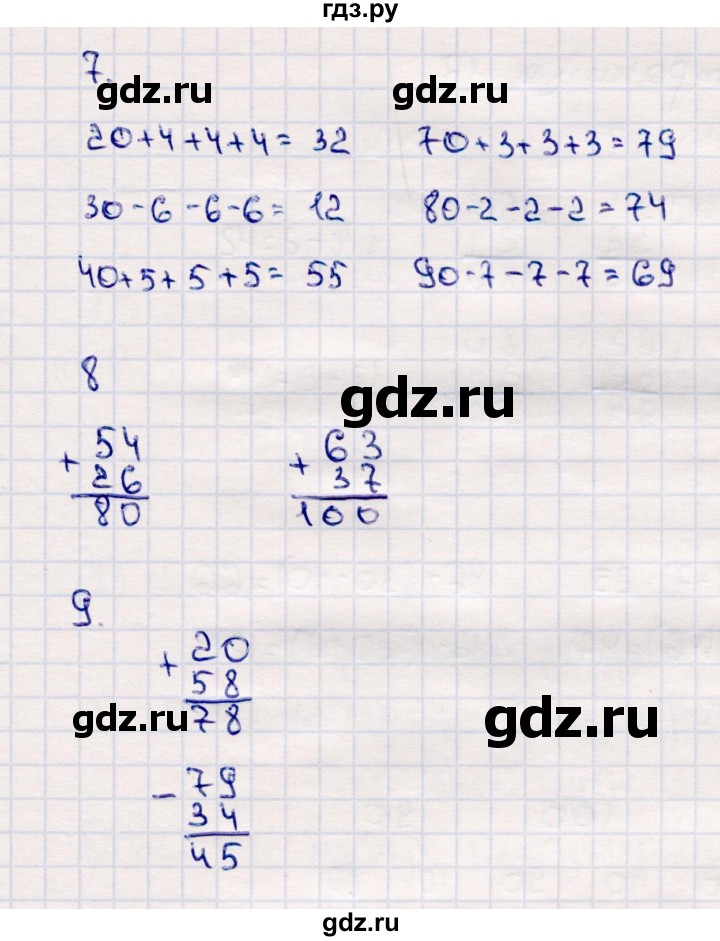 гдз.ру
7.
gdz.ru gdz.ru
20+4+4+4= 32 70+3+3+3=79
30-6-6-6= 12 80-2-2-2=74
40+5+5+5= 55 90-7-7-7=69
8
gdz.ru
+ 54 + 63
26 37
80 100
9.
+ 20
58
gdz.ru 78 gdz.ru
- 79
34
45
gdz.ru